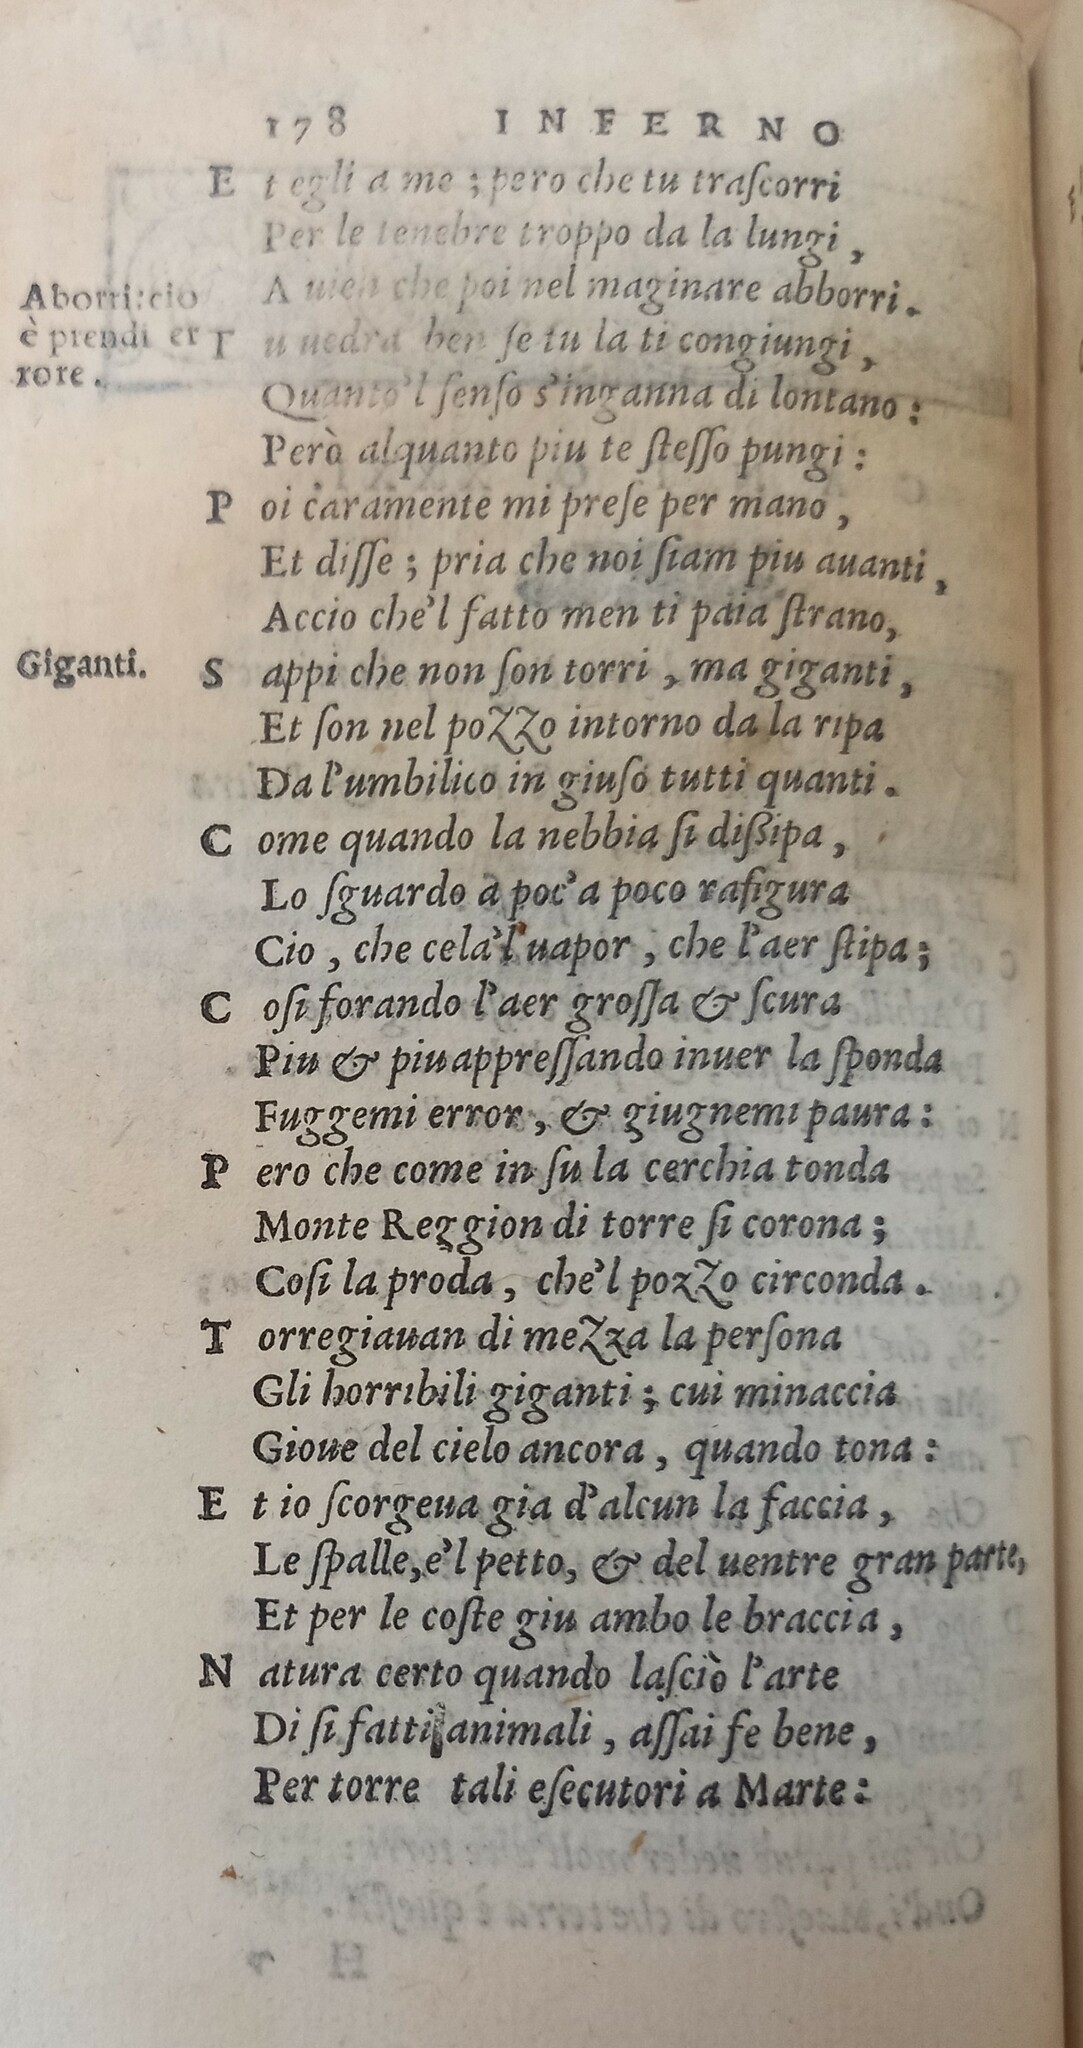 178 INFERNO
Et egli a me ; pero che tu traſcorri
Per le tenebre troppo da la lungi,
Auien che poi nel maginare abborri.
Tu uedra ben ſe tu la ti congiungi,
Quanto'l ſenſo s'inganna di lontano:
Però alquanto piu te ſteſſo pungi:
Poi caramente mi preſe per mano,
Et diſſe; pria che noi ſiam piu auanti,
Accio che'l fatto men ti paia ſtrano,
Sappi che non ſon torri, ma giganti,
Et ſon nel pozzo intorno da la ripa
Da l'umbilico in giuſo tutti quanti.
Come quando la nebbia ſi diſsipa,
Lo ſguardo a poc'a poco rafigura
Cio, che cela'l uapor, che l'aer ſtipa;
Coſi forando l'aer groſſa & ſcura
Piu & piu appreſſando inuer la ſponda
Fuggemi error, & giugnemi paura:
Pero che come in ſu la cerchia tonda
Monte Reggion di torre ſi corona;
Coſi la proda, che'l pozzo circonda.
Torregiauan di mezza la perſona
Gli horribili giganti; cui minaccia
Gioue del cielo ancora, quando tona:
Et io ſcorgeua gia d'alcun la faccia,
Le ſpalle, e'l petto, & del uentre gran parte,
Et per le coſte giu ambo le braccia,
Natura certo quando laſciò l'arte
Di ſi fatti animali, aſſai fe bene,
Per torre tali eſecutori a Marte:
Aborriſcio
è prendi er
rore.
Giganti.